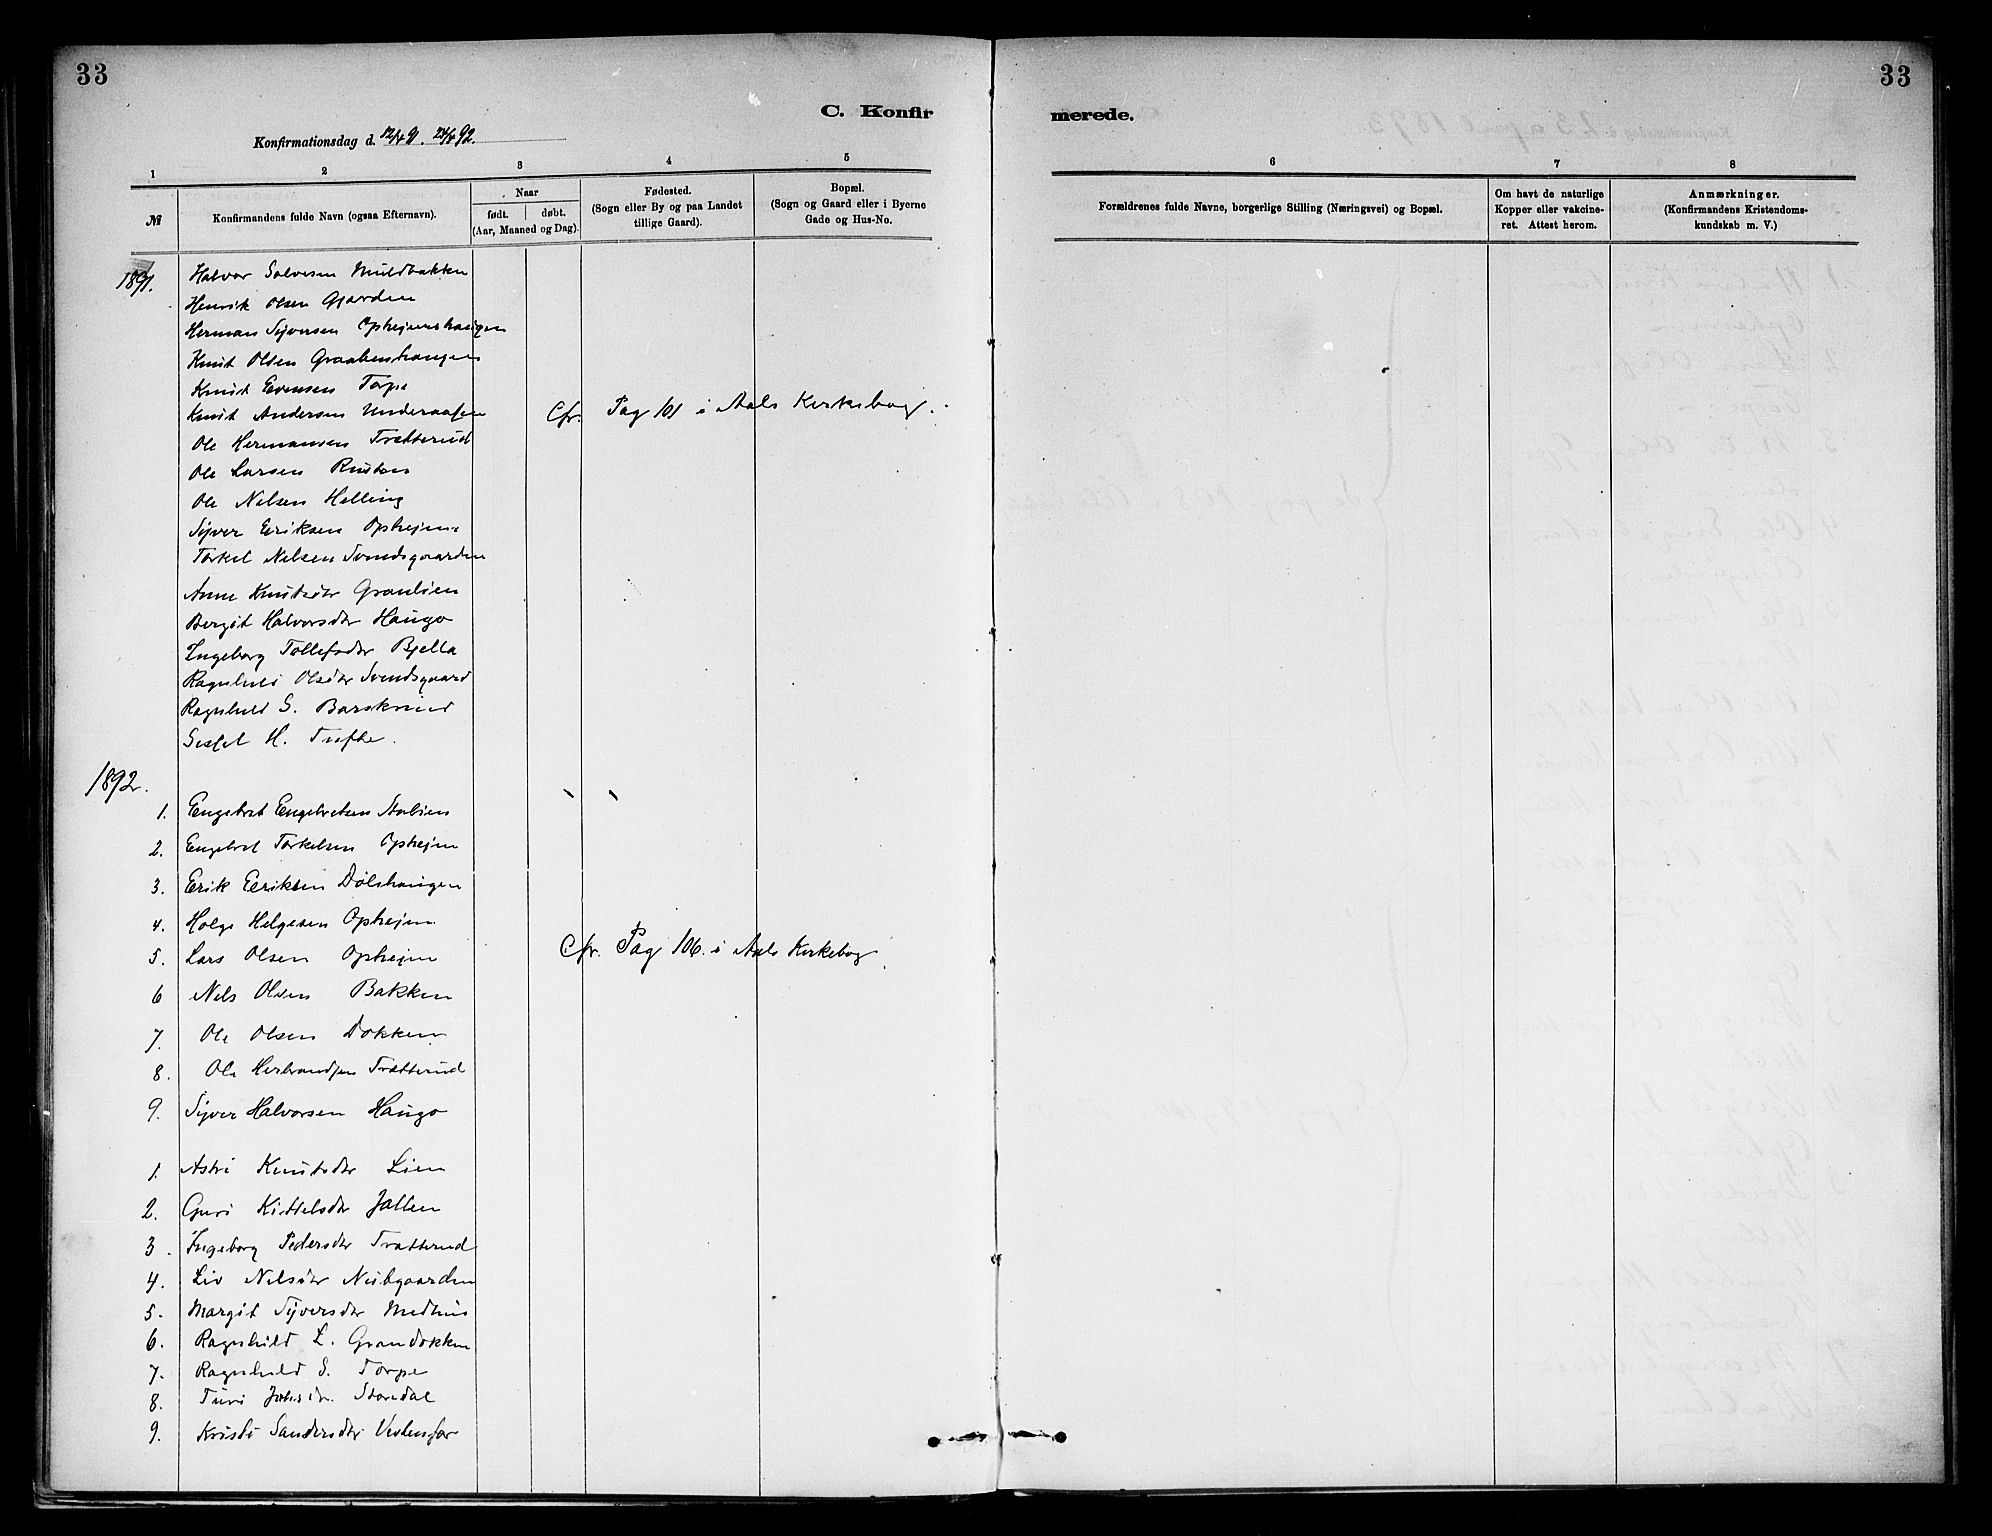 33
33
C. Konfirmerede.
Konfirmationsdag d. 12/4 91. 24/4 92.
1 2 3 4 5 6 7 8
№
Konfirmandens fulde Navn (ogsaa Efternavn).
Naar
født. døbt.
(Aar, Maaned og Dag).
Fødested.
(Sogn eller By og paa Landet
tillige Gaard).
Bopæl.
(Sogn og Gaard eller i Byerne
Gade og Hus-No.
Forældrenes fulde Navne, borgerlige Stilling (Næringsvei) og Bopæl.
Om havt de naturlige
Kopper eller vakcine-
ret. Attest herom.
Anmærkninger.
(Konfirmandens Kristendoms-
kundskab m. V.)
1891. Halvor Solvesen Muldbakken
Henrik Olsen Gjarden
Herman Syversen Ophejmshaugen
Knut Olsen Graabenshaugen
Knut Evensen Torpe
Knut Andersen Underaasen Cfr. Pag 101 i Aals Kirkebog.
Ole Hermansen Trætterud
Ole Larsen Rustan
Ole Nelsen Helling
Syver Eriksen Ophejm
Torkel Nelsen Svendsgaarden
Anne Knutsdtr Granlien
Bergit Halvorsdtr Haugo
Ingeborg Tollefsdtr Bjella
Ragnhild Olsdtr Svendsgaard
Ragnhild S. Barskrind
Sissel H. Tufte.
1892.
1. Engebret Engebretsen Stalien
2. Engebret Torkelsen Ophejm
3. Erik Eriksen Dølshaugen
4. Holge Helgesen Ophejm
5. Lars Olsen Ophejm Cfr. Pag 106. i Aals Kirkebog
6 Nels Olsen Bakken
7. Ole Olsen Dokken
8. Ole Herbrandsen Trætterud
9. Syver Halvorsen Haugo
1. Astri Knutsdtr Lien
2. Guri Kittelsdtr Jallen
3. Ingeborg Pedersdtr Trætterud
4. Liv Nelsdtr Nubgaarden
5. Margit Syversdtr Medhus
6. Ragnhild L. Grandokken
7. Ragnhild S. Torpe
8. Turi Stavedal
9. Kristi Sandersdtr Veslensfar